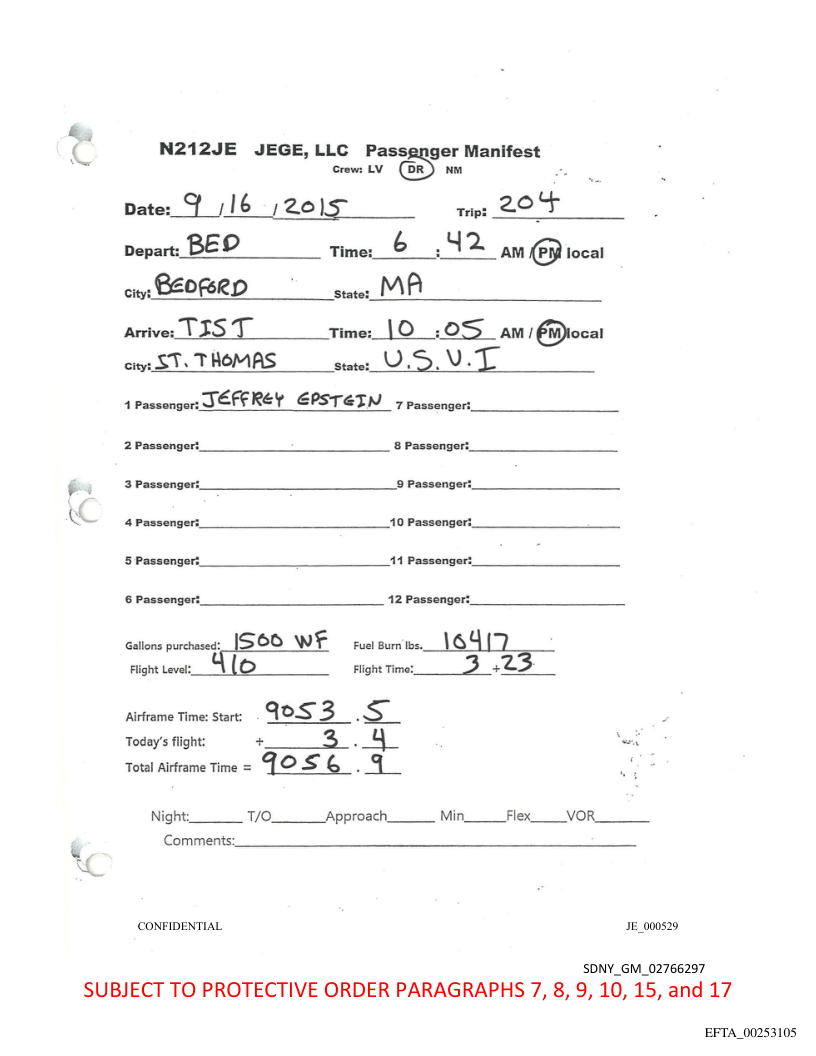 N212JE JEGE, LLC Passenger Manifest
Crew: LV DR NM
Date: 9 / 16 / 2015 Trip: 204
Depart: BED Time: 6 : 42 AM / PM local
City: BEDFORD State: MA
Arrive: TIST Time: 10 : 05 AM / PM local
City: ST. THOMAS State: U.S.V.I
1 Passenger: JEFFREY EPSTEIN 7 Passenger:
2 Passenger: 8 Passenger:
3 Passenger: 9 Passenger:
4 Passenger: 10 Passenger:
5 Passenger: 11 Passenger:
6 Passenger: 12 Passenger:
Gallons purchased: 1500 WF Fuel Burn lbs. 10417
Flight Level: 410 Flight Time: 3 + 23
Airframe Time: Start: 9053 . 5
Today's flight: + 3 . 4
Total Airframe Time = 9056 . 9
Night: T/O Approach Min Flex VOR
Comments:
CONFIDENTIAL JE_000529
SDNY_GM_02766297
SUBJECT TO PROTECTIVE ORDER PARAGRAPHS 7, 8, 9, 10, 15, and 17
EFTA_00253105